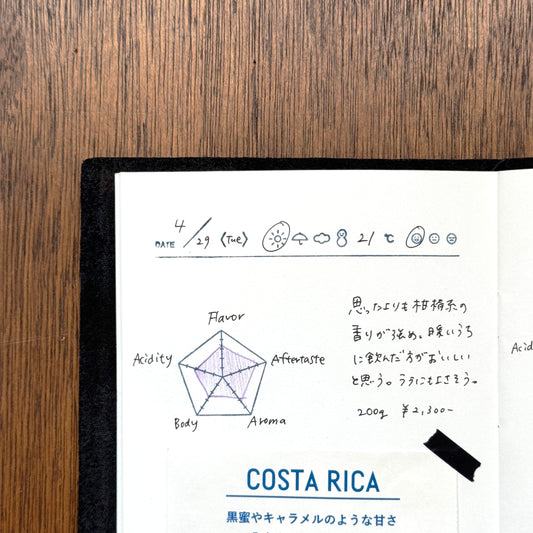 DATE 4/29 (Tue) 21 ℃
Flavor
Acidity
Aftertaste
Body
Aroma
思ったよりも柑橘系の
香りが強め。暖いうち
に飲んだ方がおいしい
と思う。ラテにもよさそう。
200g ¥2,300-
Acid
COSTA RICA
黒蜜やキャラメルのような甘さ